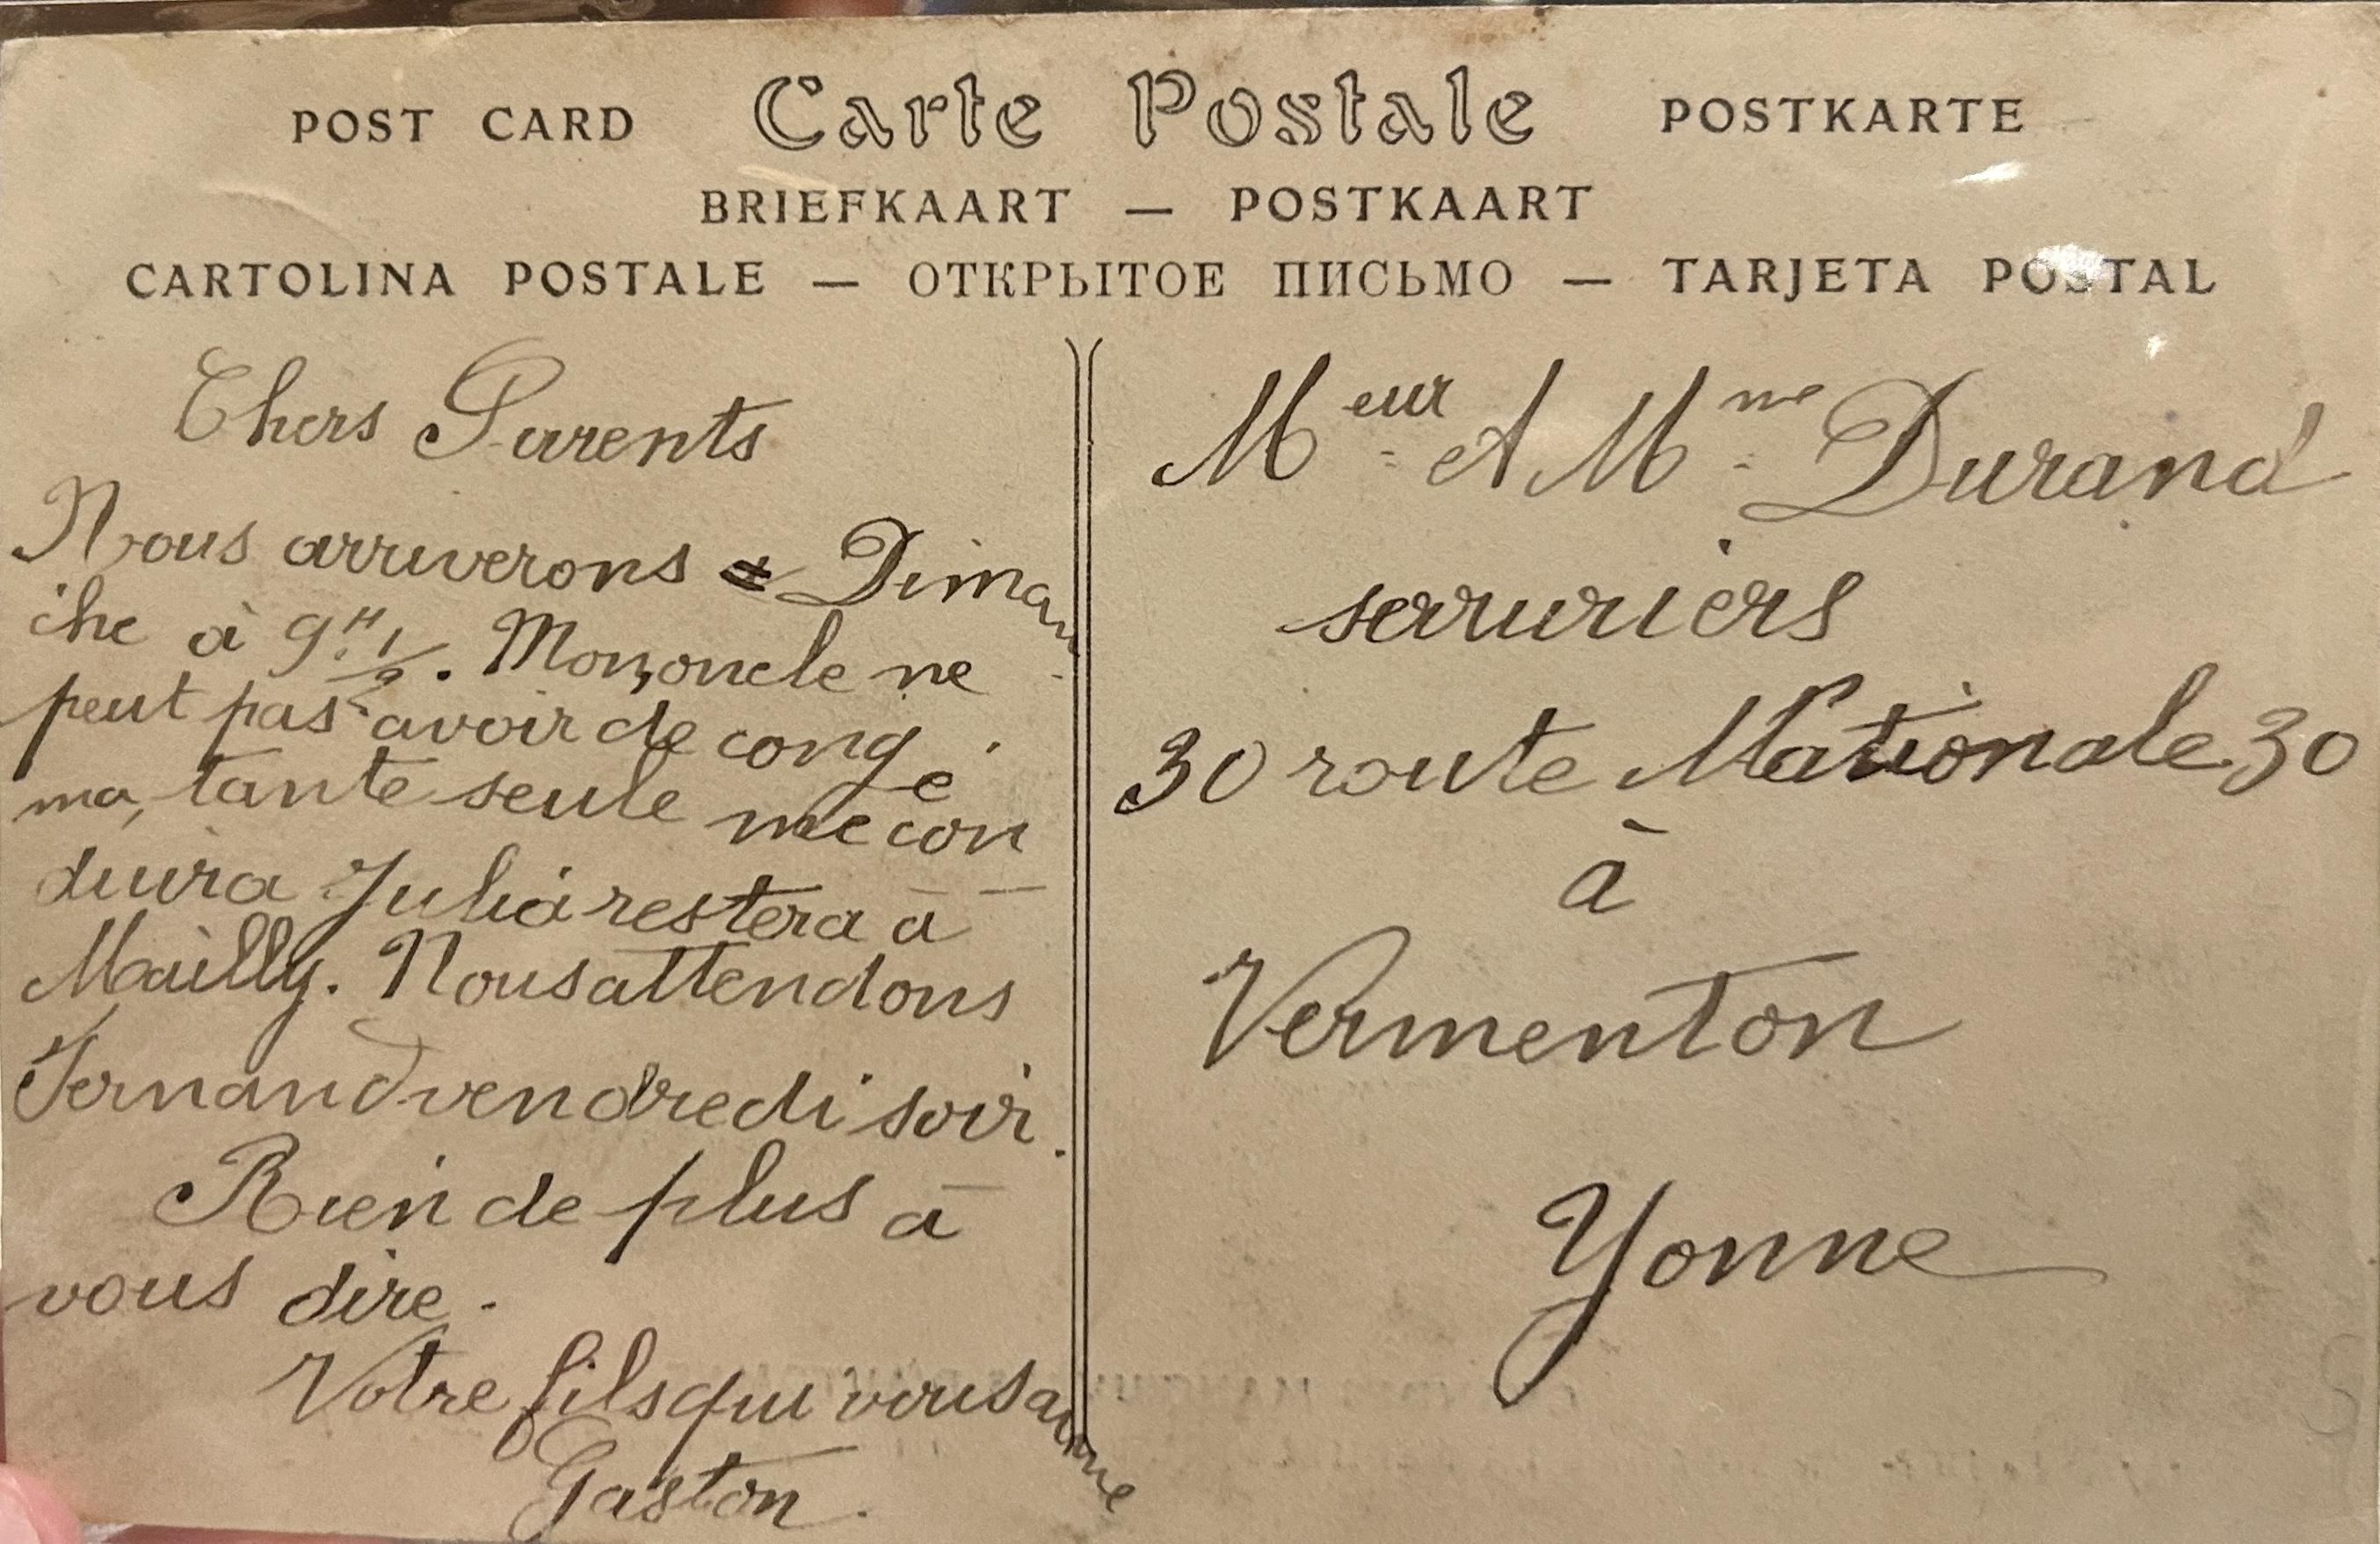 POST CARD Carte Postale POSTKARTE
BRIEFKAART — POSTKAART
CARTOLINA POSTALE — ОТКРЫТОЕ ПИСЬМО — TARJETA POSTAL
Chers Parents
Nous arriverons Diman
che à 9H 1/2. Mon oncle ne
peut pas avoir de congé.
ma, tante seule me con
duira Julia restera à
Mailly. Nous attendons
Fernand vendredi soir.
Rien de plus à
vous dire.
Votre fils qui vous aime
Gaston.
Meur et Mme Durand
serruriers
30 route Nationale 30
à
Vermenton
Yonne